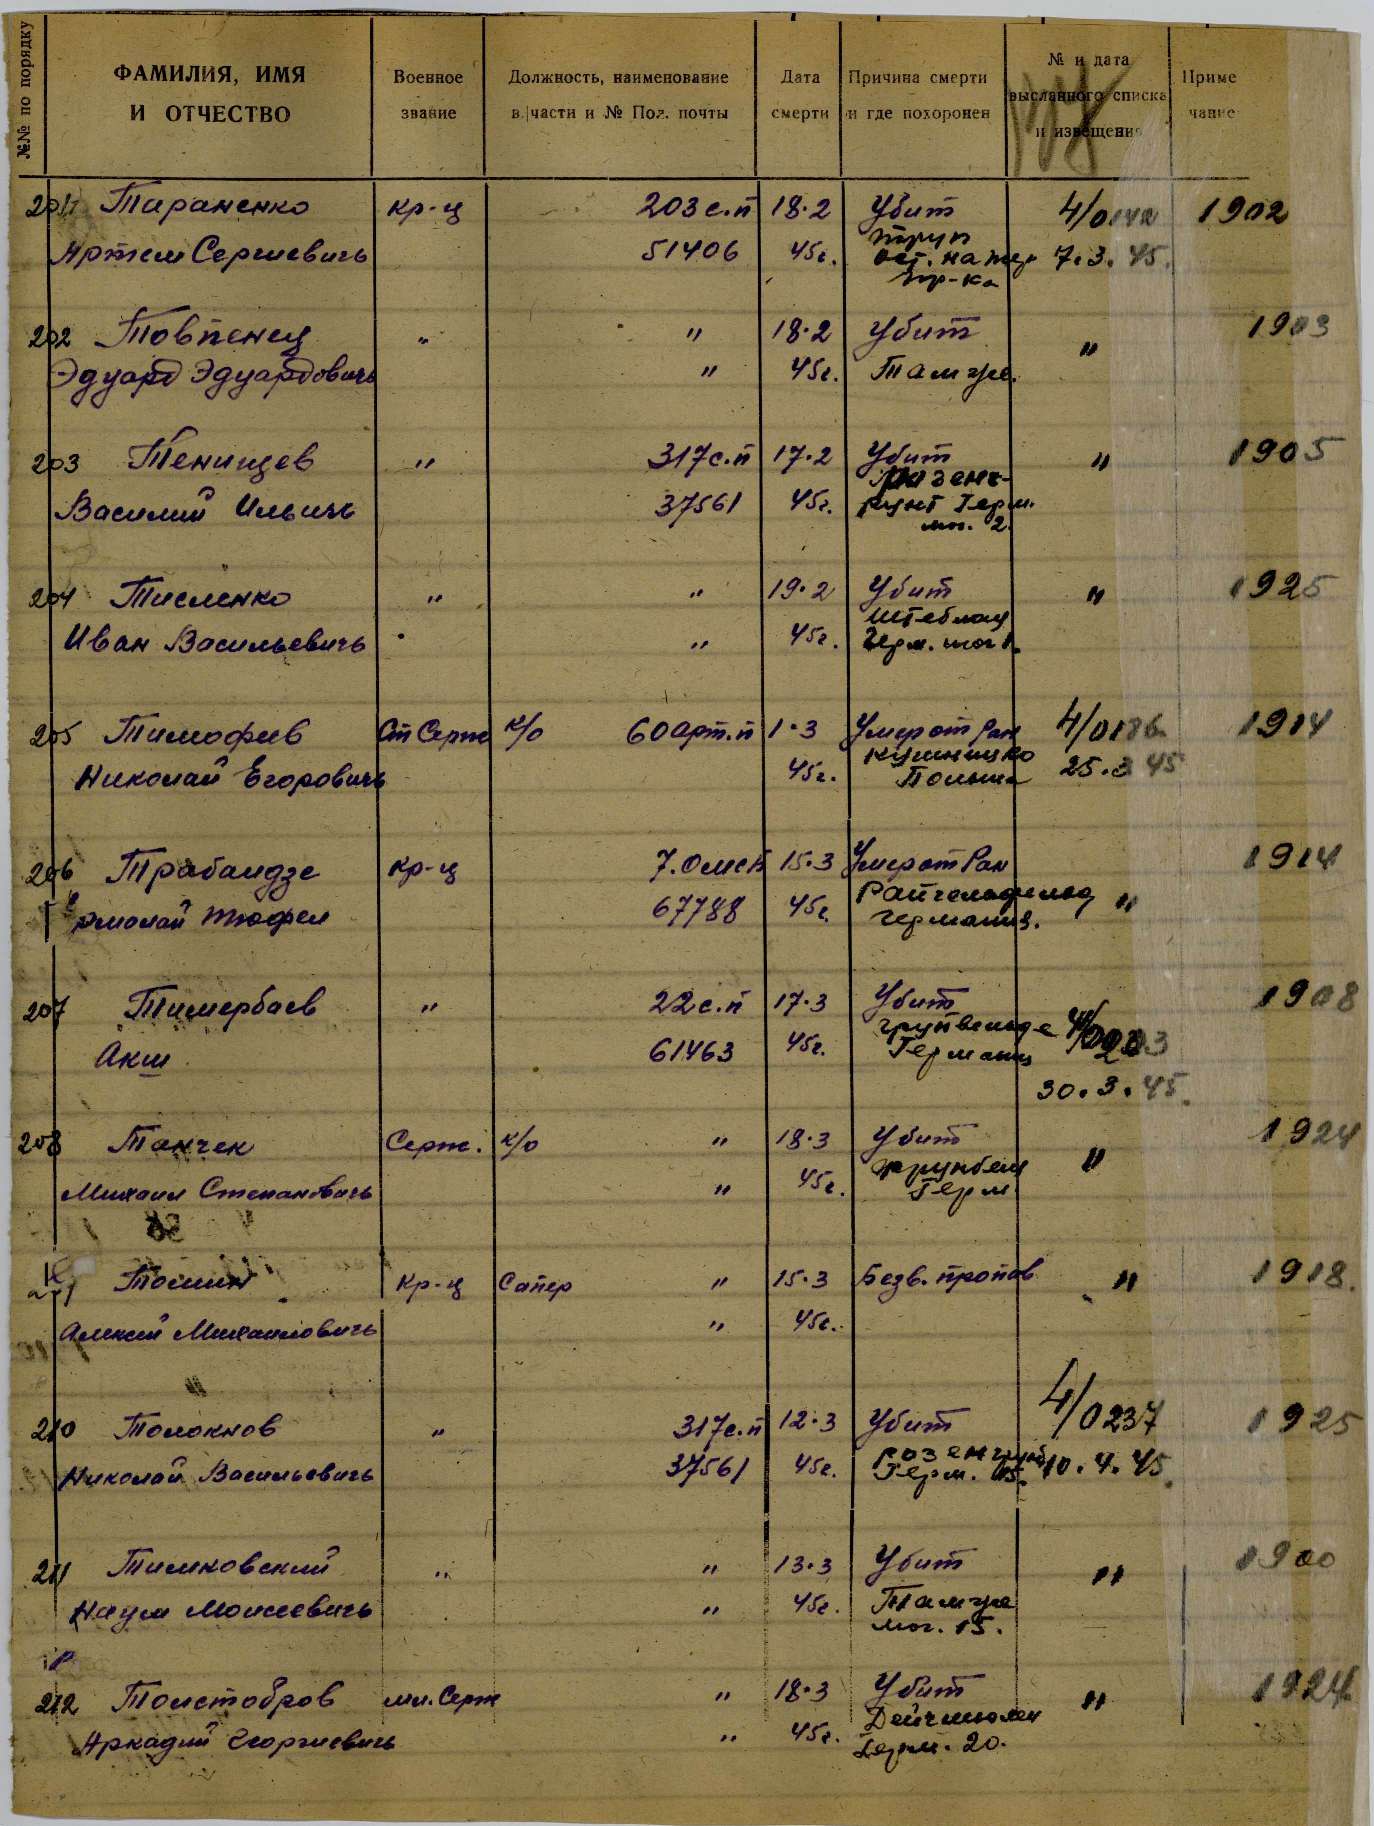 №№ по порядку
ФАМИЛИЯ, ИМЯ И ОТЧЕСТВО
Военное звание
Должность, наименование в/части и № Пол. почты
Дата смерти
Причина смерти и где похоронен
№ и дата высланного списка и извещения
Примечание
201 Тараненко кр-ц 203 с.п 18.2 Убит 4/0142 1902
Артем Сергиевичь 51406 45г. труп ост. на тер 7.3.45.
пр-ка
202 Товпенец " " 18.2 Убит " 1903
Эдуард Эдуардовичь " 45г. Там же.
203 Тенищев " 317 с.п 17.2 Убит " 1905
Василий Ильичь 37561 45г. Розенг-
рунт Герм.
мог. 2.
204 Тисленко " " 19.2 Убит " 1925
Иван Васильевичь " 45г.
Герм. мог 1.
205 Тимофиев Ст Серж к/о 60 арт.п 1.3 Умер от Ран 4/0186 1914
Николай Егоровичь 45г. Польша 25.3 45
206 Трабаидзе кр-ц 7. омсб 15.3 Умер от Ран 1914
67788 45г. "
Германия.
207 Тимербаев " 22 с.п 17.3 Убит 1908
Акш 61463 45г. Грунвельде 4/0203
Германия
30.3.45.
208 Танчек Серж. к/о " 18.3 Убит " 1924
Михаил Степановичь " 45г.
Герм
209 Томин кр-ц Сапер " 15.3 Безв. пропав " 1918.
Алексей Михаиловичь " 45г.
210 Толокнов " 317 с.п 12.3 Убит 4/0237 1925
Николай Васильевичь 37561 45г. Розенгрунт 10.4.45.
Герм. 15.
211 Тимковский " " 13.3 Убит " 1900
Наум Моисеевичь " 45г. Там же
мог. 15.
212 Толстобров мл. Серж " 18.3 Убит " 1924
Аркадий Георгиевичь " 45г.
Герм. 20.